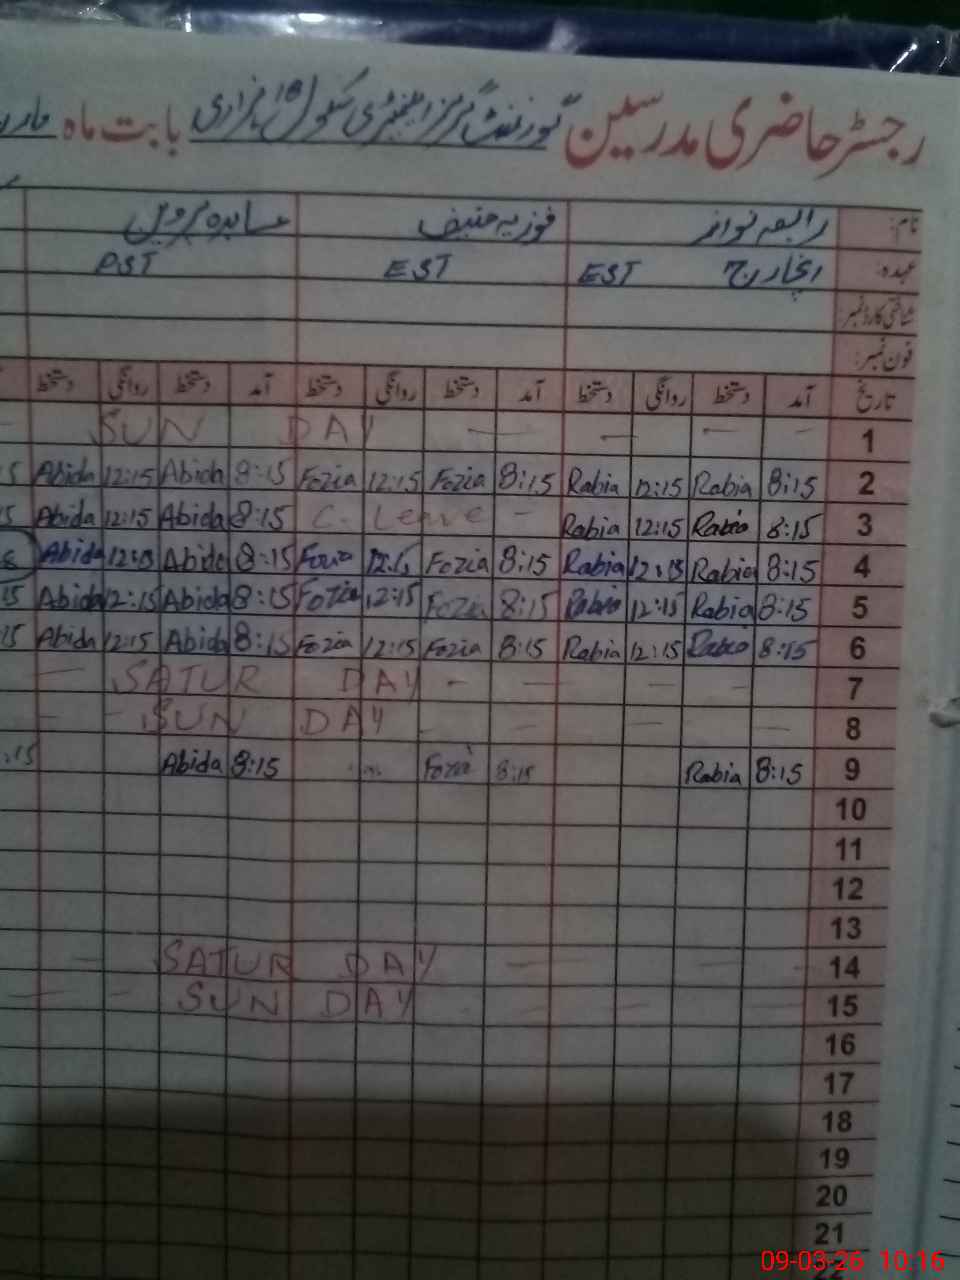 رجسٹر حاضری مدرسین گورنمنٹ گرلز ایلیمنٹری سکول 18 ہزاری بابت ماہ
نام: رابعہ نواز فوزیہ حنیف عابدہ پروین
عہدہ: انچارج EST EST PST
شناختی کارڈ نمبر:
فون نمبر:
تاریخ آمد دستخط روانگی دستخط آمد دستخط روانگی دستخط آمد دستخط روانگی دستخط
SUN DAY - - - 1
Abida 12:15 Abida 8:15 Fozia 12:15 Fozia 8:15 Rabia 12:15 Rabia 8:15 2
Abida 12:15 Abida 8:15 C. Leave - Rabia 12:15 Rabia 8:15 3
Abida 12:15 Abida 8:15 Fozia 12:15 Fozia 8:15 Rabia 12:15 Rabia 8:15 4
Abida 12:15 Abida 8:15 Fozia 12:15 Fozia 8:15 Rabia 12:15 Rabia 8:15 5
Abida 12:15 Abida 8:15 Fozia 12:15 Fozia 8:15 Rabia 12:15 Rabia 8:15 6
SATUR DAY - - - - 7
SUN DAY - - - - 8
:15 Abida 8:15 Fozia 8:15 Rabia 8:15 9
10
11
12
13
SATUR DAY - - - 14
SUN DAY - - - 15
16
17
18
19
20
21
09-03-26 10:16